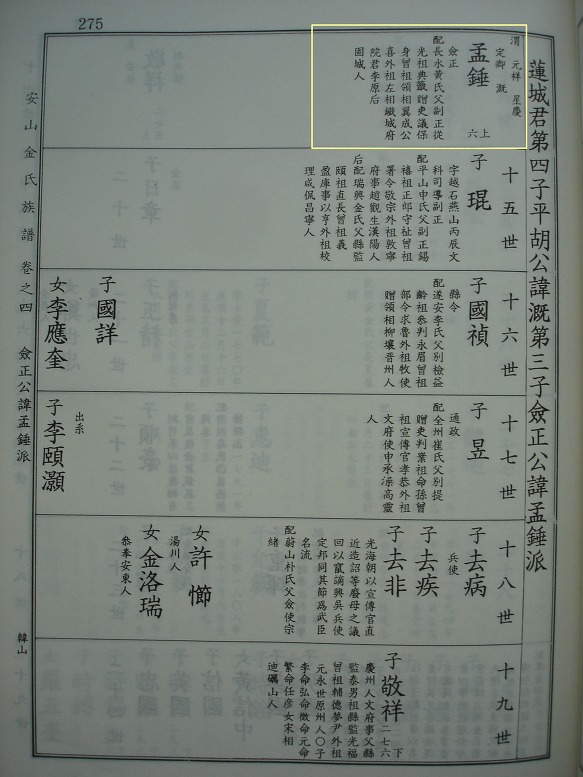 275
安山金氏族譜 卷之四 僉正公諱孟鍾派
韓山
蓮城君第四子平胡公諱漑第三子僉正公諱孟鍾派
渭 元祥 星慶
定卿 漑
孟鍾
上六
僉正
配長水黃氏父副正從
光祖典籤贈吏議保
身曾祖領相翼成公
喜外祖左相鐵城府
院君李原后
固城人
十五世
子 琨
字越石燕山丙辰文
科司導副正
配平山申氏父副正錫
禧祖正郎守祉曾祖
署令敬宗外祖敦寧
府事趙觀生漢陽人
后配瑞興金氏父縣監
頤祖直長曾祖義
盈庫事以亨外祖校
理成佩昌寧人
十六世
子國禎
縣令
配遂安李氏父別檢益
齡祖參判永眉曾祖
部令求魯外祖牧使
贈領相柳壤晋州人
子國詳
女李應奎
十七世
子 昱
通政
配全州崔氏父別提
贈吏判業祖命孫曾
祖宣傳官孝恭外祖
文府使申承濬高靈
人
子李頤灝
出系
十八世
子去病
兵使
子去疾
子去非
光海朝以宣傳官直
近造詔等廢母之議
回以竄謫興吳兵使
定邦同其節爲武臣
名流
配蔚山朴氏父僉使宗
緖
女許㤠
湯川人
女金洛瑞
叅奉安東人
十九世
子敬祥
二七六
下
慶州人文府事父縣
監泰男祖縣監光福
曾祖輔德夢尹外祖
元永世原州人〇子
李命弘命徵命元命
繁命任彦女宋相
迪礪山人